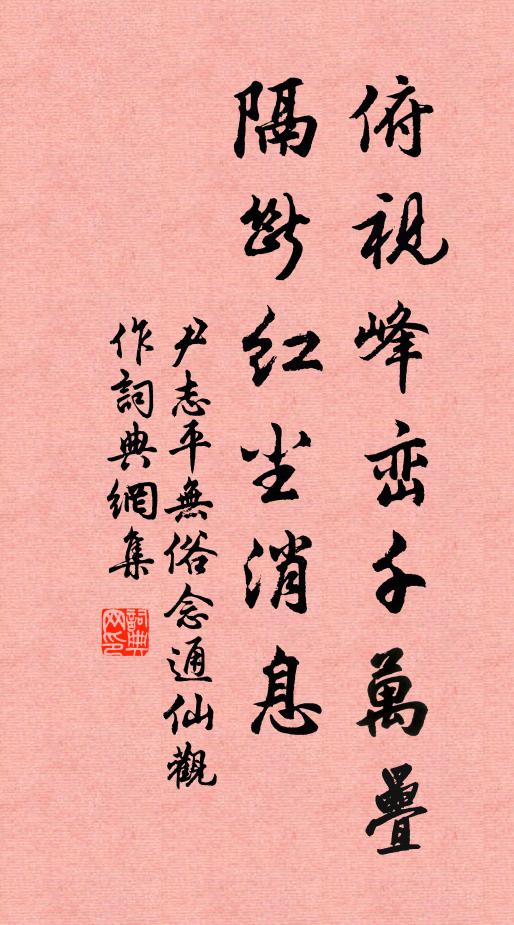 俯視峰峦千萬疊
隔斷红尘消息
尹志平無俗念通仙觀
作詞典網集
詞典网印